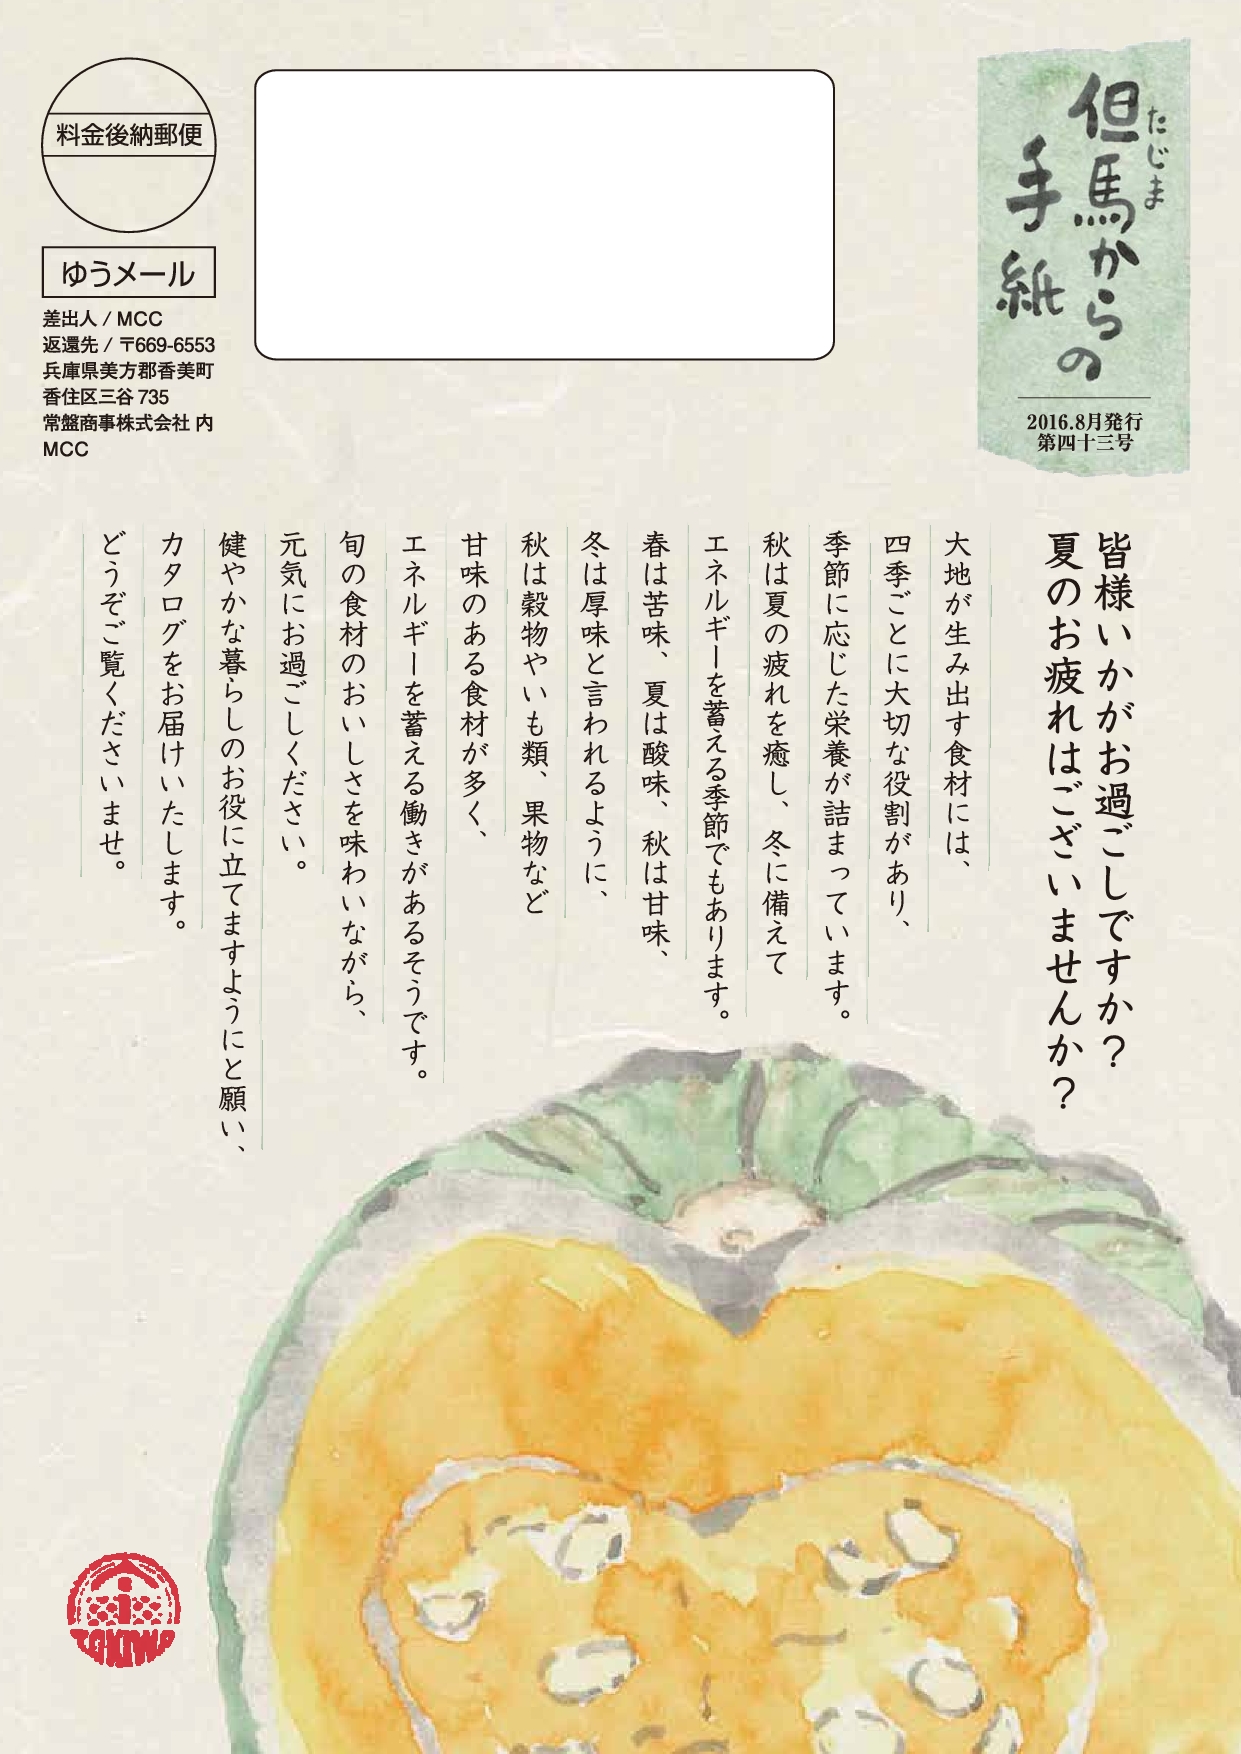 料金後納郵便
ゆうメール
差出人 / MCC
返還先 / 〒669-6553
兵庫県美方郡香美町
香住区三谷 735
常盤商事株式会社 内
MCC
たじま
但馬からの
手紙
2016.8月発行
第四十三号
皆様いかがお過ごしですか？
夏のお疲れはございませんか？
大地が生み出す食材には、
四季ごとに大切な役割があり、
季節に応じた栄養が詰まっています。
秋は夏の疲れを癒し、冬に備えて
エネルギーを蓄える季節でもあります。
春は苦味、夏は酸味、秋は甘味、
冬は厚味と言われるように、
秋は穀物やいも類、果物など
甘味のある食材が多く、
エネルギーを蓄える働きがあるそうです。
旬の食材のおいしさを味わいながら、
元気にお過ごしください。
健やかな暮らしのお役に立てますようにと願い、
カタログをお届けいたします。
どうぞご覧くださいませ。
TOKIWA